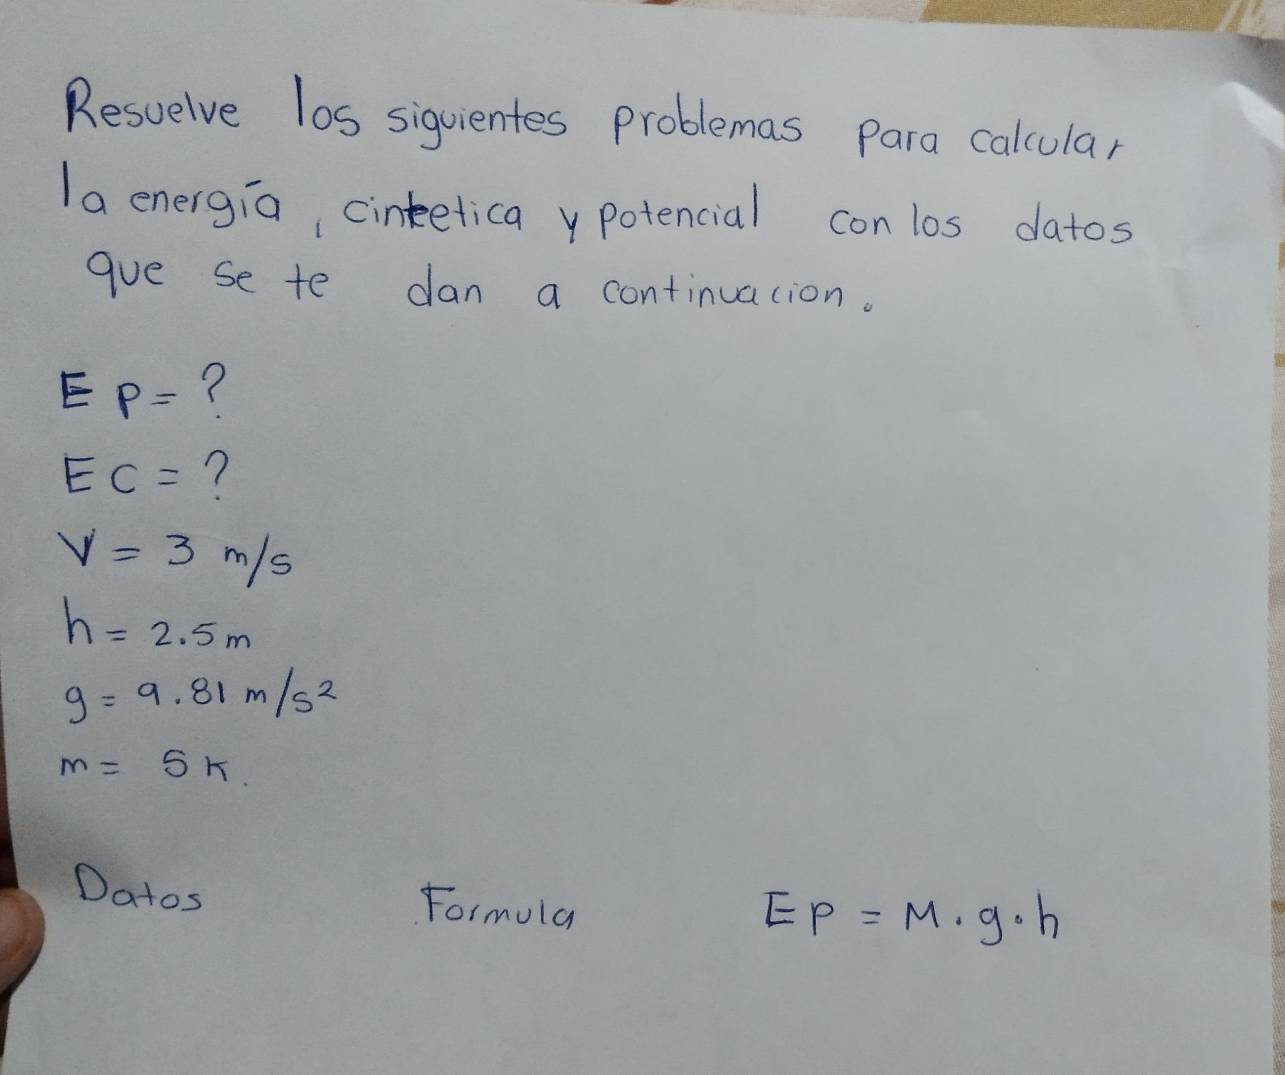 Resuelve los siguientes problemas para calcular
la energía, cinetica y potencial con los datos
que se te dan a continuacion.
Ep = ?
EC = ?
V = 3 m/s
h = 2.5 m
g = 9.81 m/s²
m = 5 K.
Datos Formula Ep = M.g.h